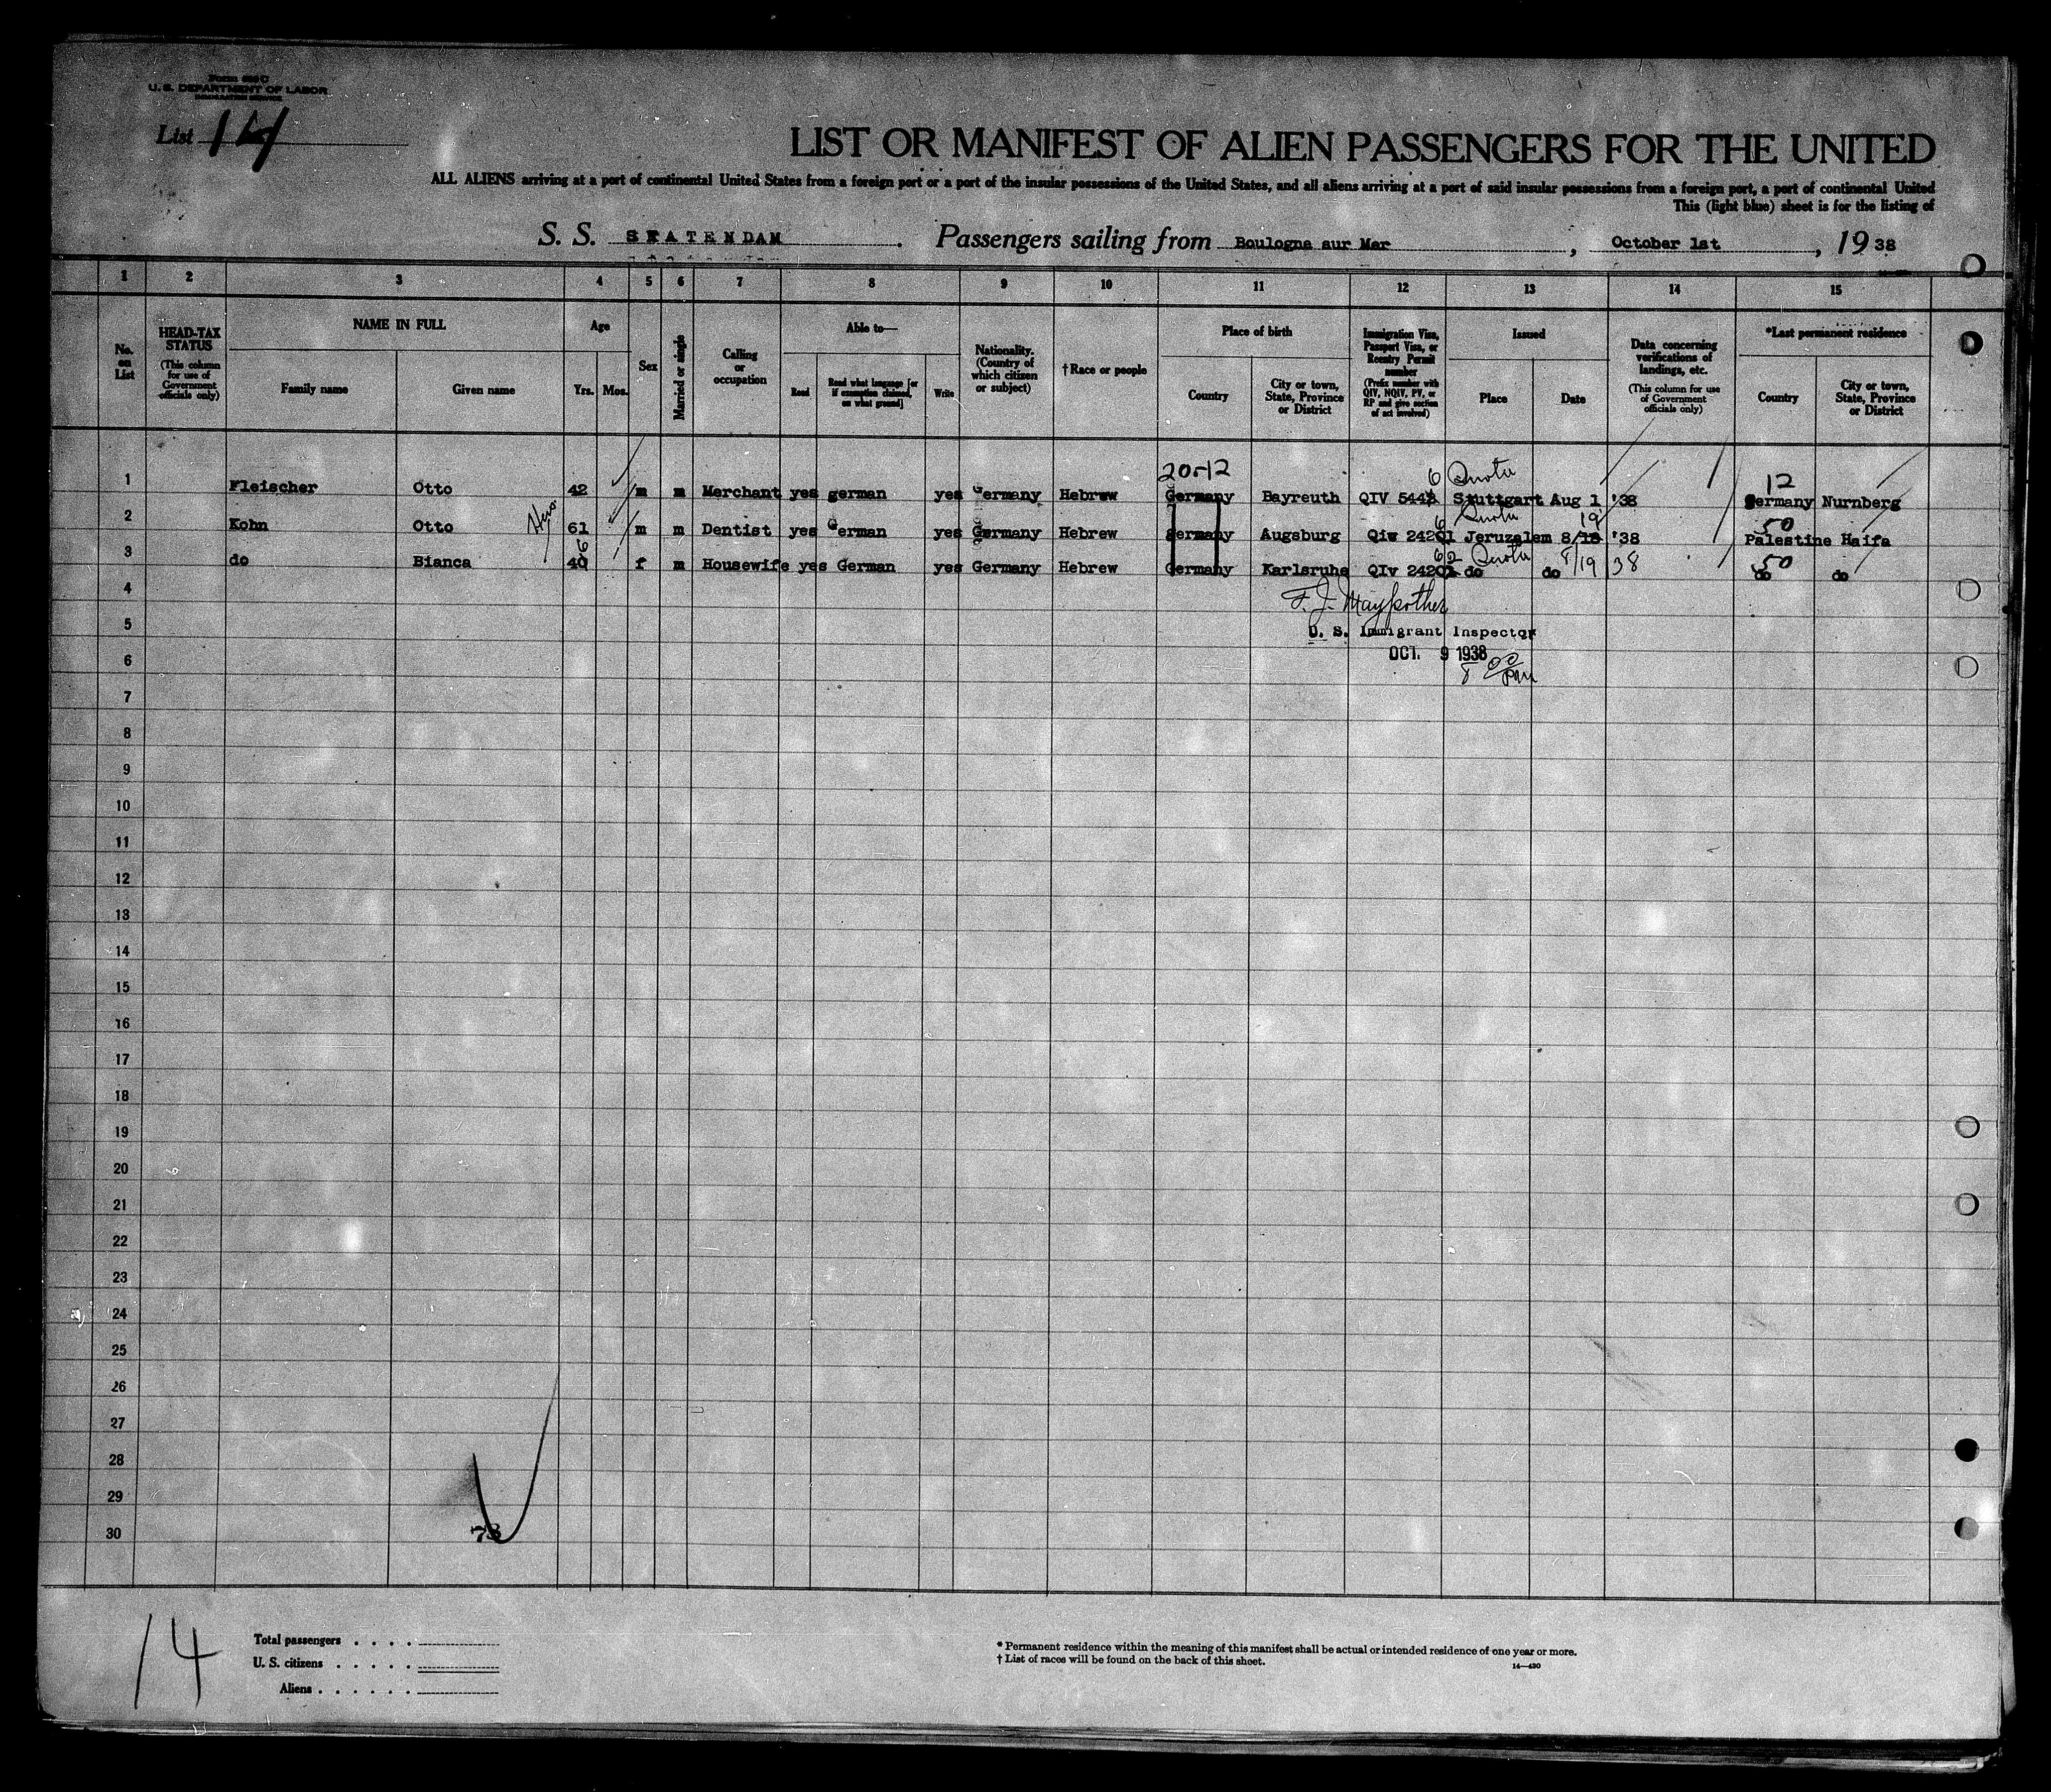 Form 630 C
U. S. DEPARTMENT OF LABOR
IMMIGRATION SERVICE
List 14
LIST OR MANIFEST OF ALIEN PASSENGERS FOR THE UNITED
ALL ALIENS arriving at a port of continental United States from a foreign port or a port of the insular possessions of the United States, and all aliens arriving at a port of said insular possessions from a foreign port, a port of continental United
This (light blue) sheet is for the listing of
S. S. STATENDAM. Passengers sailing from Boulogne sur Mer, October 1st, 19 38
1 2 3 4 5 6 7 8 9 10 11 12 13 14 15
No. on List
HEAD-TAX STATUS (This column for use of Government officials only)
NAME IN FULL
Family name
Given name
Age
Yrs. Mos.
Sex
Married or single
Calling or occupation
Able to—
Read
Read what language [or if exemption claimed, on what ground]
Write
Nationality. (Country of which citizen or subject)
†Race or people
Place of birth
Country
City or town, State, Province or District
Immigration Visa, Passport Visa, or Reentry Permit number (Prefix number with QIV, NQIV, PV, or RP and give section of act involved)
Issued
Place
Date
Data concerning verifications of landings, etc. (This column for use of Government officials only)
*Last permanent residence
Country
City or town, State, Province or District
20-12 6 Quota 12
1 Fleischer Otto 42 m m Merchant yes german yes Germany Hebrew Germany Bayreuth QIV 544 Stuttgart Aug 1 '38 Germany Nurnberg
6 Quota 19 50
2 Kohn Otto 61 m m Dentist yes German yes Germany Hebrew germany Augsburg Qiv 24201 Jeruzalem 8/18 '38 Palestine Haifa
6 Quota 8/19 38 50
3 do Bianca 40 f m Housewife yes German yes Germany Hebrew Germany Karlsruhe QIv 24202 do do do do
4
5
6
F. J. Maypother
U. S. Immigrant Inspector
OCT. 9 1938
8 00 pm
7
8
9
10
11
12
13
14
15
16
17
18
19
20
21
22
23
24
25
26
27
28
29
30
73
14
Total passengers . . . .
U. S. citizens . . . . .
Aliens . . . . . .
* Permanent residence within the meaning of this manifest shall be actual or intended residence of one year or more.
† List of races will be found on the back of this sheet.
14—430